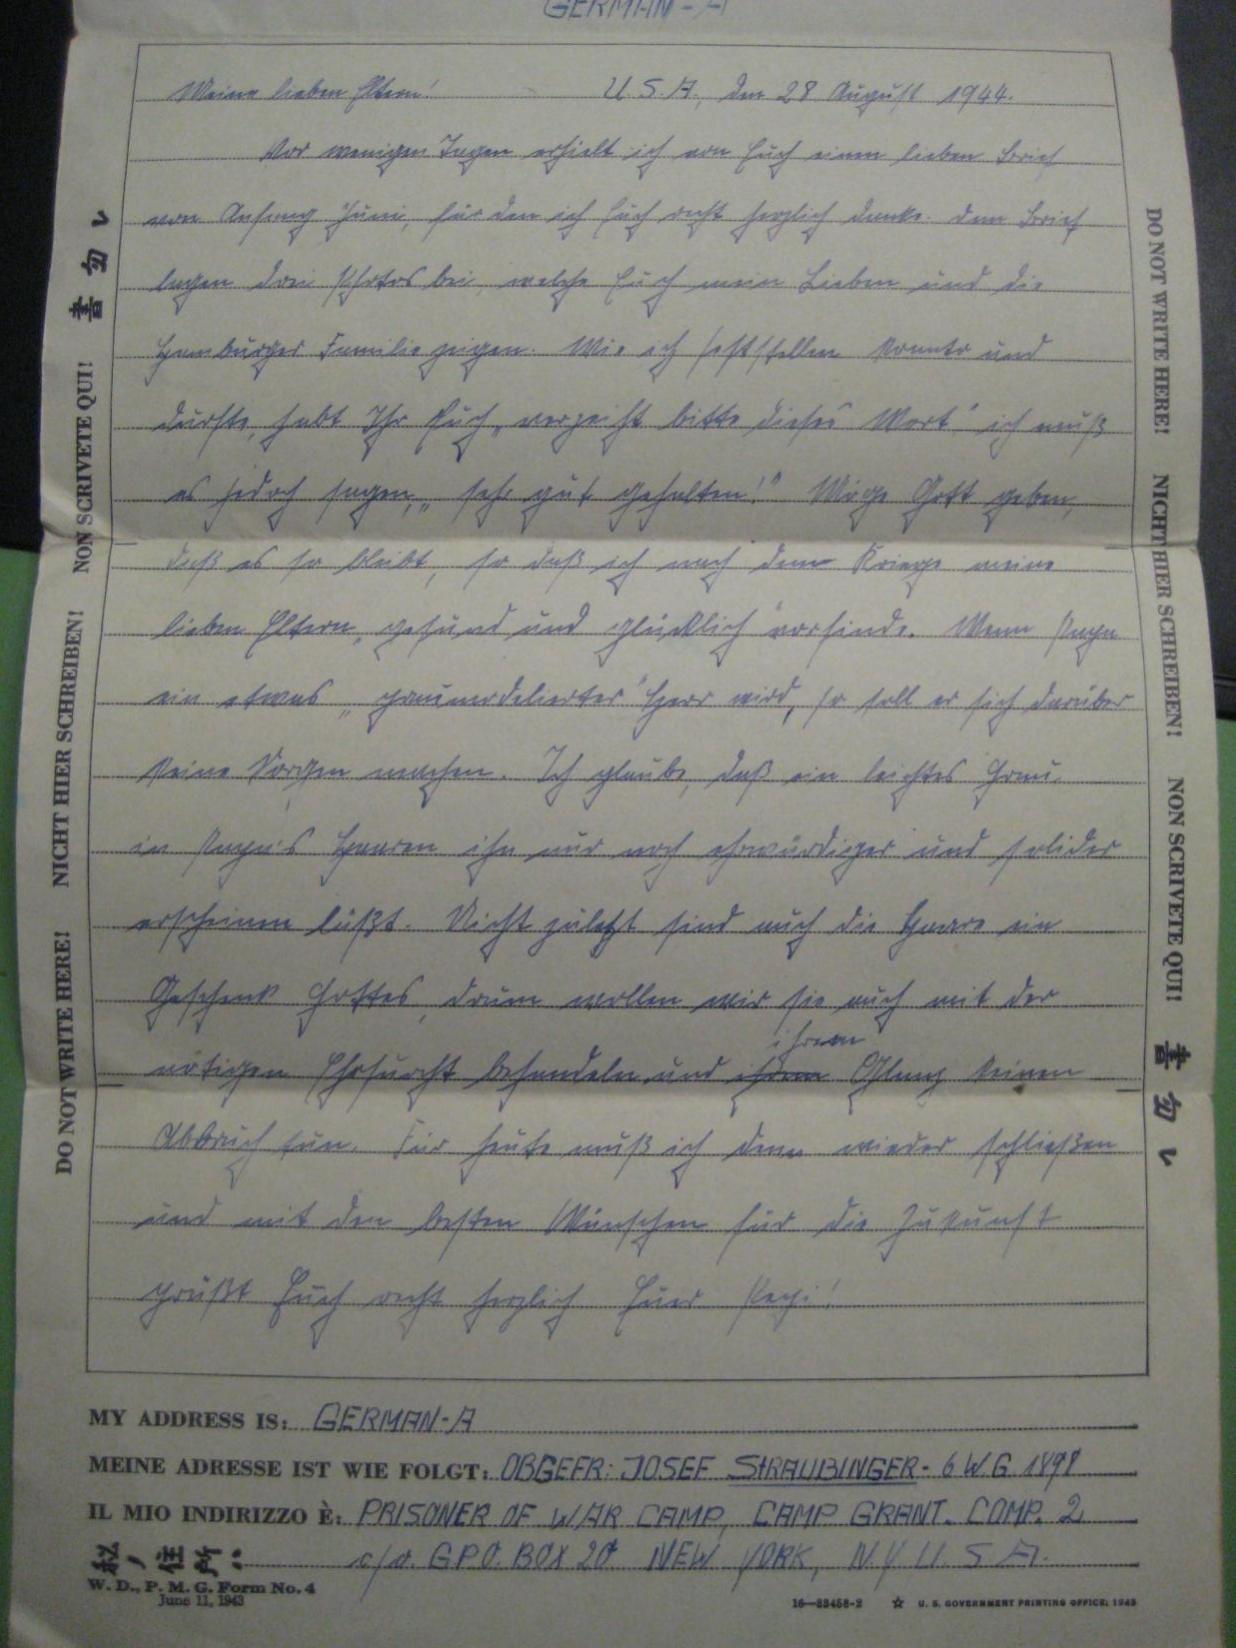 GERMAN-A
Meine lieben Eltern! U.S.A., den 28 August 1944.
Vor wenigen Tagen erhielt ich von Euch einen lieben Brief
von Anfang Juni, für den ich Euch recht herzlich danke. Dem Brief
lagen drei Photos bei, welche Euch mein Lieben und die
Hamburger Familie zeigen. Wie ich feststellen konnte und
durfte, habt Ihr Euch, verzeiht bitte dieses "Wort" ich muß
es jedoch sagen, „sehr gut gehalten!" Möge Gott geben,
daß es so bleibt, so daß ich nach dem Kriege meine
lieben Eltern „gesund und glücklich" vorfinde. Wenn Papa
ein etwas „graumodelierter" Herr wird, so soll er sich darüber
keine Sorgen machen. Ich glaube, daß ein leichtes Grau
in Papa's Haaren ihn nur noch ehrwürdiger und solider
erscheinen läßt. Nicht zuletzt sind auch die Haare ein
Geschenk Gottes, drum wollen wir sie auch mit der
ihrem
nötigen Ehrfurcht behandeln und Glanz keinen
Abbruch tun. Für heute muß ich denn wieder schließen
und mit den besten Wünschen für die Zukunft
grüßt Euch recht herzlich Euer Pepi!
DO NOT WRITE HERE! NICHT HIER SCHREIBEN! NON SCRIVETE QUI! 書勿レ
DO NOT WRITE HERE! NICHT HIER SCHREIBEN! NON SCRIVETE QUI! 書勿レ
MY ADDRESS IS: GERMAN-A
MEINE ADRESSE IST WIE FOLGT: OBGEFR: JOSEF STRAUBINGER - 6 W.G. 1898
IL MIO INDIRIZZO È: PRISONER OF WAR CAMP, CAMP GRANT. COMP. 2
私ノ住所: c/o. G.P.O. BOX 20 NEW YORK, N.Y. U.S.A.
W. D., P. M. G. Form No. 4
June 11, 1943
16—33458-2 ☆ U. S. GOVERNMENT PRINTING OFFICE: 1943